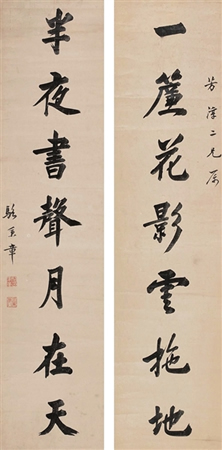 芳澤二兄属
一簾花影雲拖地
半夜書聲月在天
駱秉章